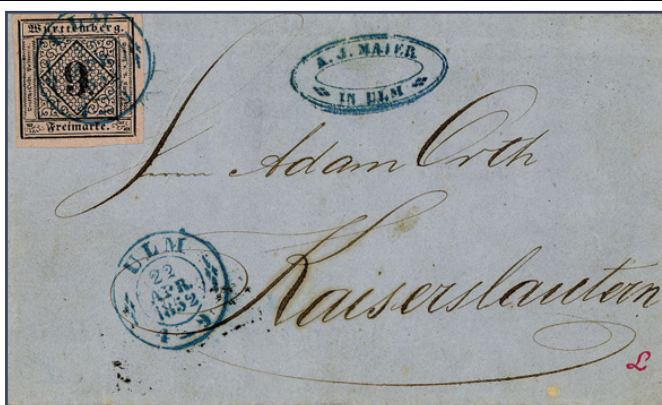 Württemberg.
9
Freimarke.
A. J. MAIER
IN ULM
Herrn Adam Orth
ULM
22
APR.
1852
Kaiserslautern